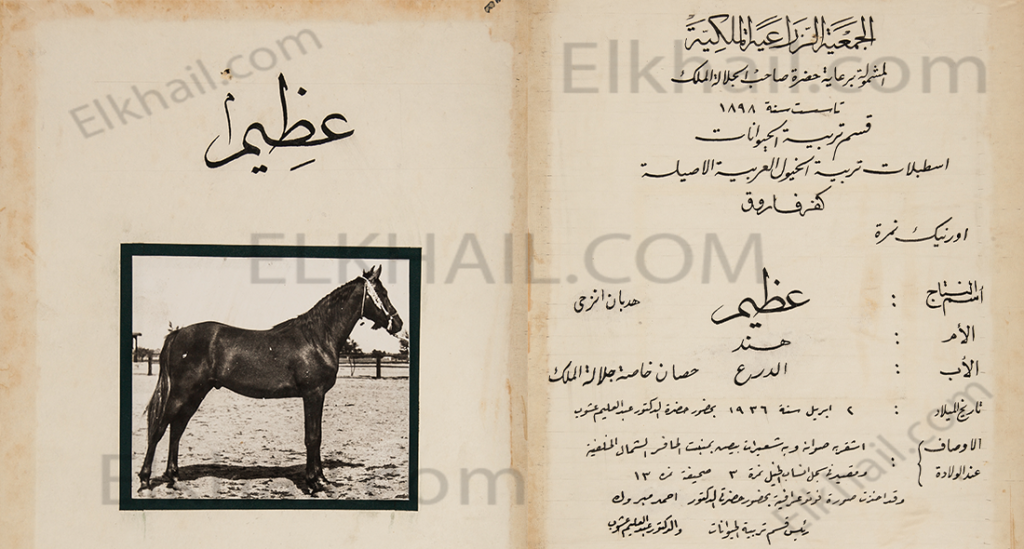 عظيم
Elkhail.com
ELKHAIL.COM
Elkhail.com
الجمعية الزراعية الملكية
المشمولة برعاية حضرة صاحب الجلالة الملك
تأسست سنة ١٨٩٨
قسم تربية الحيوانات
اسطبلات تربية الخيول العربية الاصيلة
كفر فاروق
اورنيك نمرة
اسم النتاج : عظيم هدبان انزحى
الأم : هند
الأب : الدرع حصان خاصة جلالة الملك
تاريخ الميلاد : ٢ ابريل سنة ١٩٣٦ بحضور حضرة الدكتور عبد العليم عشوب
الاوصاف عند الولادة : اشقر صوانه وبه شعيرات بيض بمنبت الحافر الشمال الخلفية
ومقيدة بسجل انساب الخيل نمرة ٣ صحيفة ن ١٣
وقد اخذت صورة فوتوغرافية بحضور حضرة الدكتور احمد مبروك
رئيس قسم تربية الحيوانات والدكتور عبد العليم عشوب
Elkhail.com
Elkhail.com